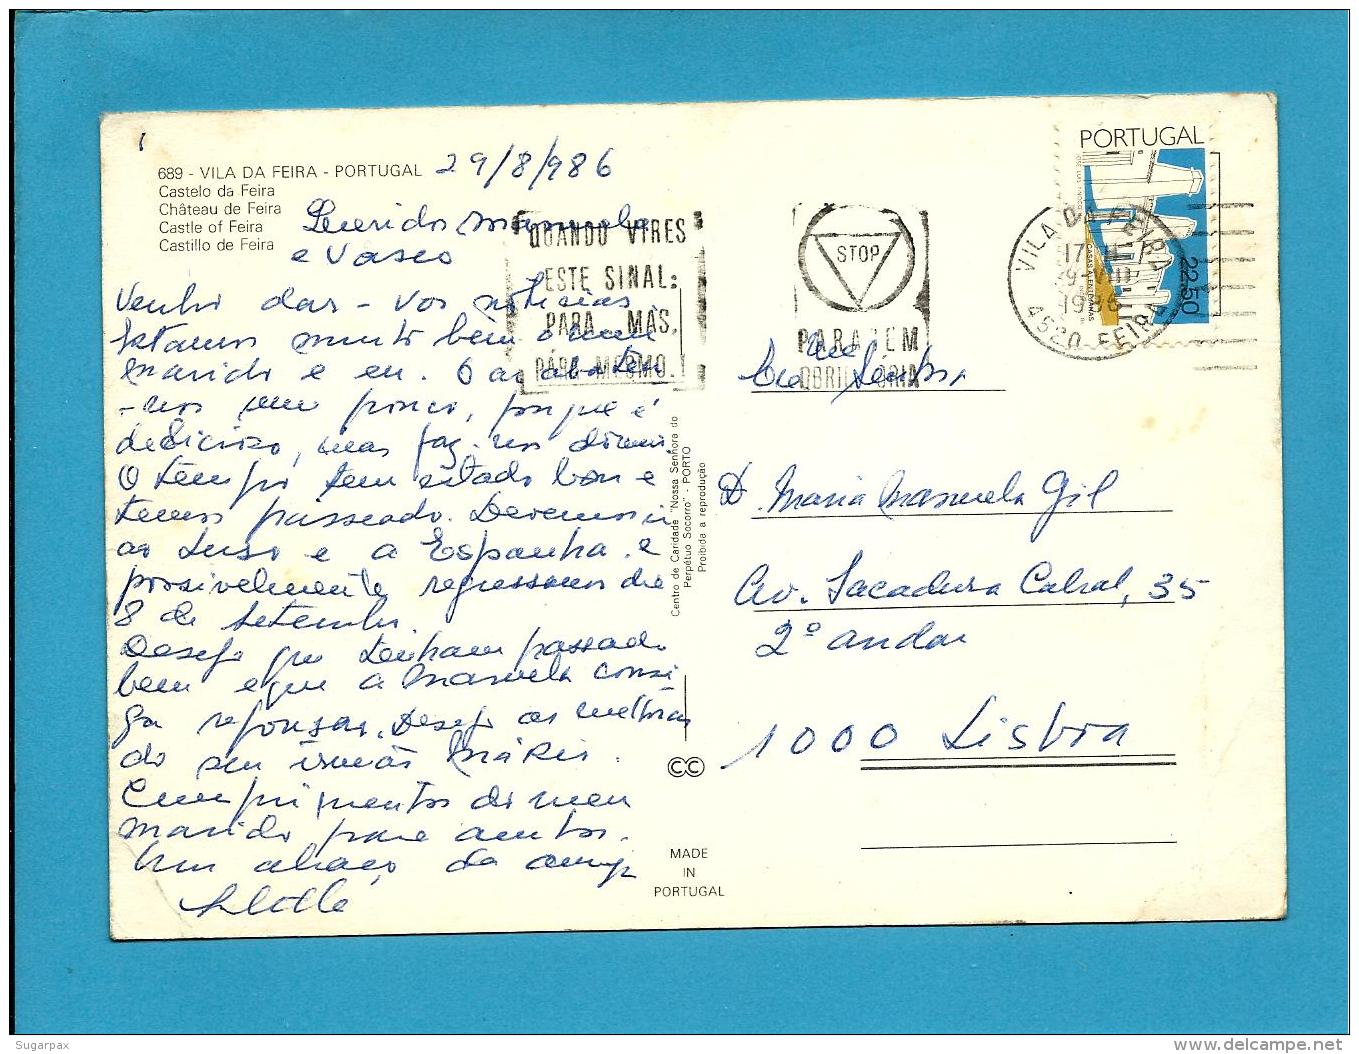 689 - VILA DA FEIRA - PORTUGAL 29/8/986
Castelo da Feira
Château de Feira
Castle of Feira
Castillo de Feira
Queridos Manuela
e Vasco
Venho dar-vos notícias
Estamos muito bem o meu
marido e eu. O ar abate
-nos um pouco, porque é
delicioso, mas faz-nos dormir
O tempo tem estado bom e
temos passeado. Devemos ir
ao Luso e a Espanha e
possivelmente regressamos dia
8 de Setembro.
Desejo que tenham passado
bem e que a Manuela consi
ga repousar. Desejo as melhoras
do seu irmão Mário.
Cumprimentos do meu
marido para ambos.
Um abraço da amiga
QUANDO VIRES
ESTE SINAL:
PARA MAS,
PÁRA MESMO.
STOP
PARAGEM
OBRIGATÓRIA
PORTUGAL
22.50
VILA DA FEIRA
17 H
9-VIII
1986
4520 FEIRA
Exma Senhora
D. Maria Manuela Gil
Av. Sacadura Cabral, 35
2º andar
1000 Lisboa
Centro de Caridade "Nossa Senhora do
Perpétuo Socorro" - PORTO
Proibida a reprodução
CC
MADE
IN
PORTUGAL
Sugarpax
delcampe.net